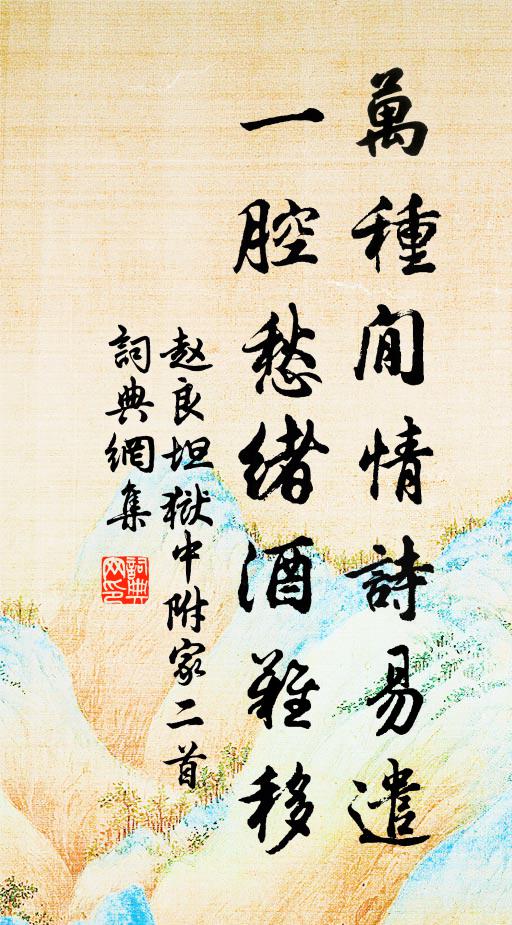 萬種閒情詩易遣
一腔愁緒酒難移
赵良坦獄中附家二首
詞典網集
詞典網印